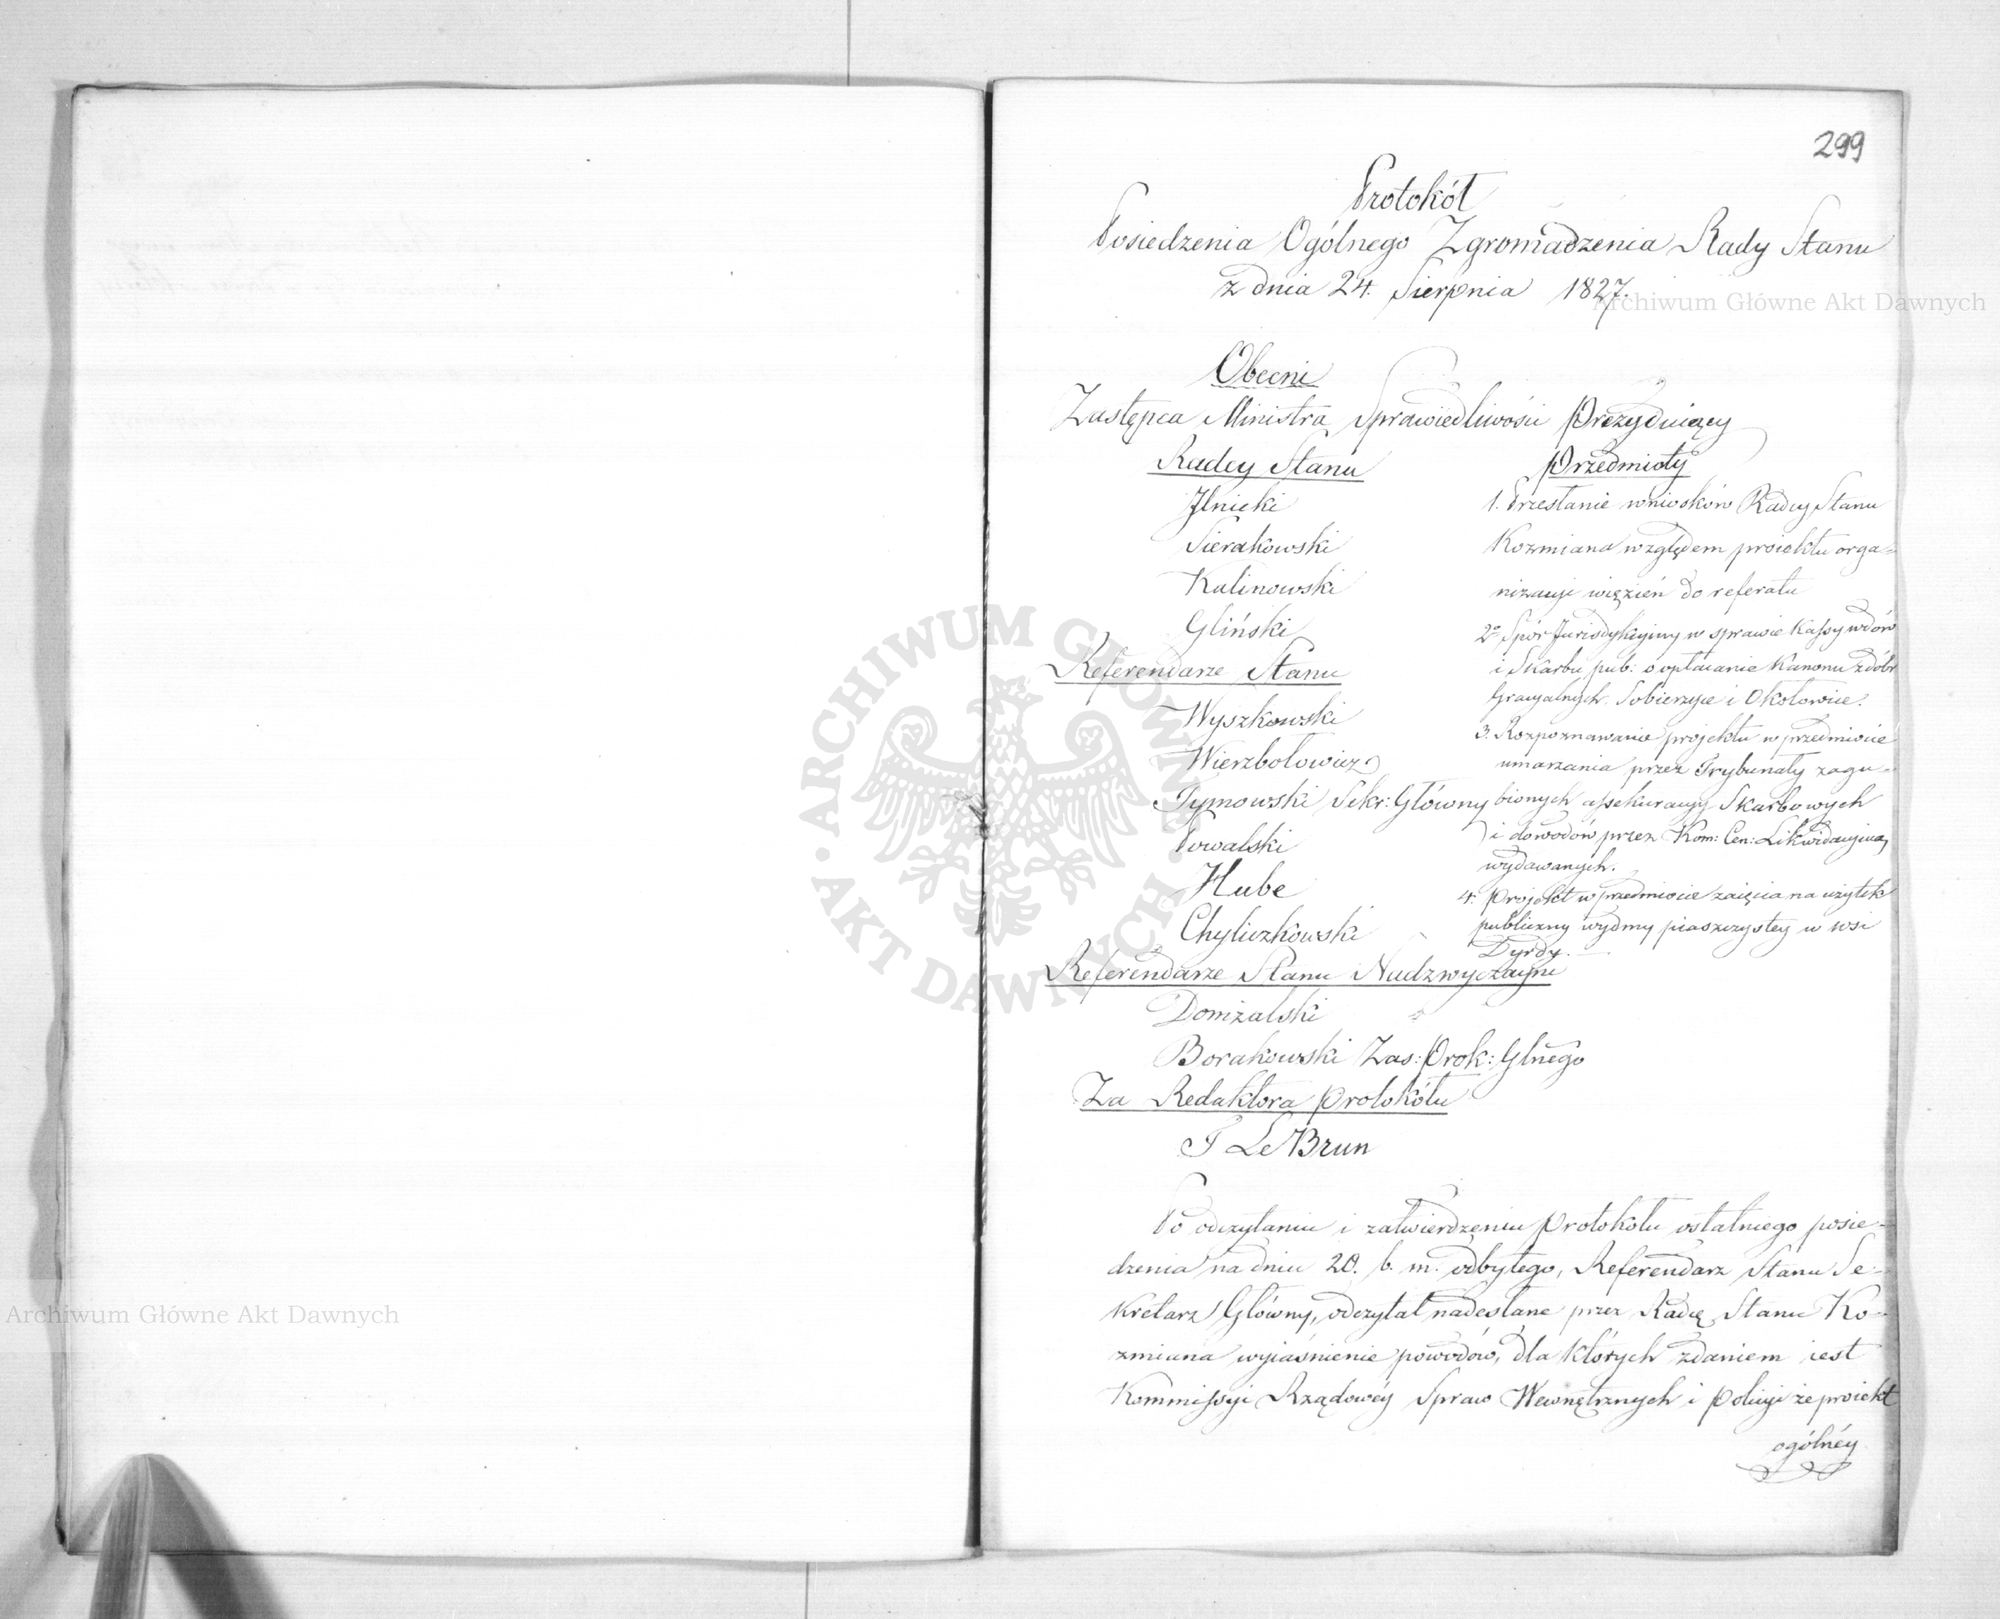 299
Protokół
Posiedzenia Ogólnego Zgromadzenia Rady Stanu
z dnia 24. Sierpnia 1827.
Obecni
Zastępca Ministra Sprawiedliwości Prezyduiący
Radcy Stanu
Ilnicki
Sierakowski
Kalinowski
Gliński
Referendarze Stanu
Wyszkowski
Wierzbołowicz
Tymowski Sekr: Główny
Powalski
Hube
Chyliczkowski
Referendarze Stanu Nadzwyczayni
Domżalski
Borakowski Zas: Prok: Glnego
Za Redaktora protokółu
LeBrun
Przedmioty
1. Przesłanie wniosków Radcy Stanu
Kozmiana względem proiektu orga-
nizacyi więzień do referatu
2º Spór Jurisdykcyiny w sprawie Kassy wdów
i Skarbu pub: o opłacanie Kanonu z dóbr
Gracyalnych Sobierzyce i Okołowice.
3. Rozpoznawanie projektu w przedmiocie
umarzania przez Trybunały zagu-
bionych assekuracyj Skarbowych
i dowodów przez Kom: Cen: Likwidacyiną
wydawanych.
4. Projekt w przedmiocie zaięcia na użytek
publiczny wydmy piaszczystey w wsi
Dyrdy.
Po odczytaniu i zatwierdzeniu Protokołu ostatniego posie-
dzenia na dniu 20. b. m. odbytego, Referendarz Stanu Se-
kretarz Główny, odczytał nadesłane przez Radcę Stanu Ko-
zmiana wyiaśnienie powodów, dla których zdaniem iest
Kommissyi Rządowéy Spraw Wewnętrznych i Policyi że proiekt
ogólnéy
Archiwum Główne Akt Dawnych
Archiwum Główne Akt Dawnych
ARCHIWUM GŁÓWNE
AKT DAWNYCH